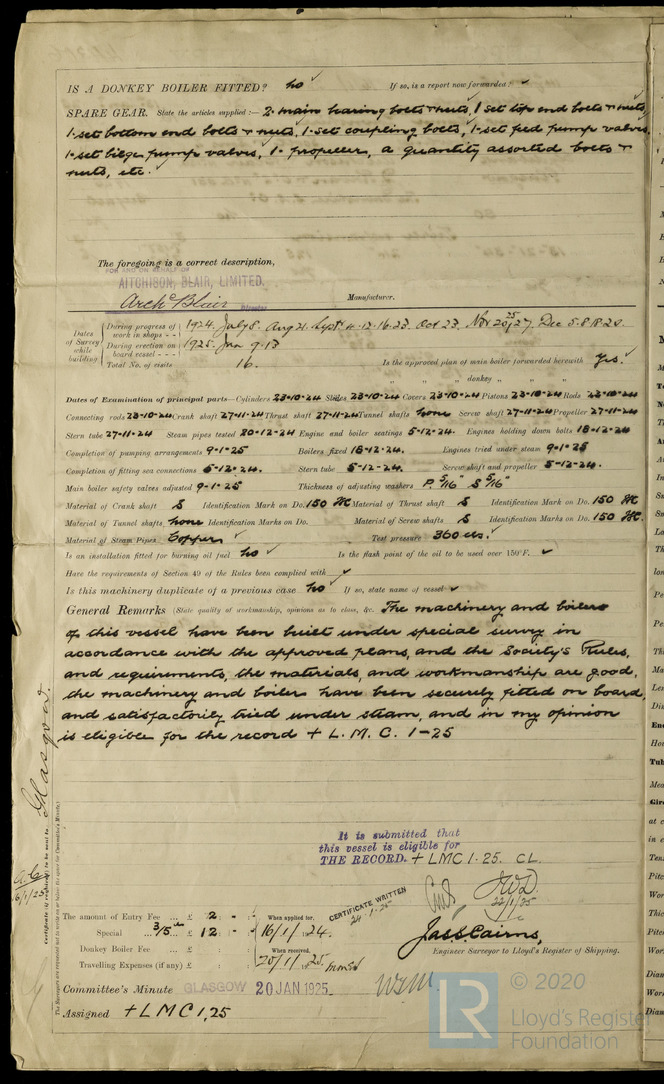 IS A DONKEY BOILER FITTED? no ✓ If so, is a report now forwarded? ✓
SPARE GEAR. State the articles supplied:— 2 main bearing bolts & nuts, 1 set top end bolts & nuts,
1 set bottom end bolts & nuts, 1 set coupling bolts, 1 set feed pump valves,
1 set bilge pump valves, 1 propeller, a quantity assorted bolts &
nuts, etc.
The foregoing is a correct description,
FOR AND ON BEHALF OF
AITCHISON, BLAIR, LIMITED.
Archd Blair Manufacturer.
Dates of Survey while building
During progress of work in shops - - 1924. July 8. Aug 21. Sept 4. 12. 16. 23. Oct 23. Nov 20. 25. 27. Dec 5. 8. 18. 20.
During erection on board vessel - - - 1925. Jan 9. 13
Total No. of visits 16. Is the approved plan of main boiler forwarded herewith Yes. ✓
" " " donkey " " "
Dates of Examination of principal parts—Cylinders 23-10-24 Slides 23-10-24 Covers 23-10-24 Pistons 23-10-24 Rods 23-10-24
Connecting rods 23-10-24 Crank shaft 27-11-24 Thrust shaft 27-11-24 Tunnel shafts none Screw shaft 27-11-24 Propeller 27-11-24
Stern tube 27-11-24 Steam pipes tested 20-12-24 Engine and boiler seatings 5-12-24. Engines holding down bolts 18-12-24
Completion of pumping arrangements 9-1-25 Boilers fixed 18-12-24. Engines tried under steam 9-1-25
Completion of fitting sea connections 5-12-24. Stern tube 5-12-24. Screw shaft and propeller 5-12-24.
Main boiler safety valves adjusted 9-1-25 Thickness of adjusting washers P. 5/16" S 5/16"
Material of Crank shaft S Identification Mark on Do. 150 Material of Thrust shaft S Identification Mark on Do. 150
Material of Tunnel shafts none Identification Marks on Do. Material of Screw shafts S Identification Marks on Do. 150
Material of Steam Pipes Copper ✓ Test pressure 360 lbs. ✓
Is an installation fitted for burning oil fuel no ✓ Is the flash point of the oil to be used over 150°F. ✓
Have the requirements of Section 49 of the Rules been complied with ✓
Is this machinery duplicate of a previous case no ✓ If so, state name of vessel ✓
General Remarks (State quality of workmanship, opinions as to class, &c. The machinery and boilers
of this vessel have been built under special survey in
accordance with the approved plans, and the Society's Rules,
and requirements, the materials, and workmanship are good,
the machinery and boilers have been securely fitted on board,
and satisfactorily tried under steam, and in my opinion
is eligible for the record + L. M. C. 1-25
It is submitted that
this vessel is eligible for
THE RECORD. + LMC 1.25. CL.
22/1/25
Glasgow.
Certificate (if required) to be sent to
16/1/25
The amount of Entry Fee ... £ 2 : - : When applied for, CERTIFICATE WRITTEN
Special ... 3/5 ... £ 12 : - : 16/1/1924. 24-1-25
Donkey Boiler Fee ... £ : : When received,
Travelling Expenses (if any) £ : : 20/1/1925
Jas. S. Cairns,
Engineer Surveyor to Lloyd's Register of Shipping.
Committee's Minute GLASGOW 20 JAN 1925
Assigned + LMC 1,25
LR
© 2020
Lloyd's Register
Foundation